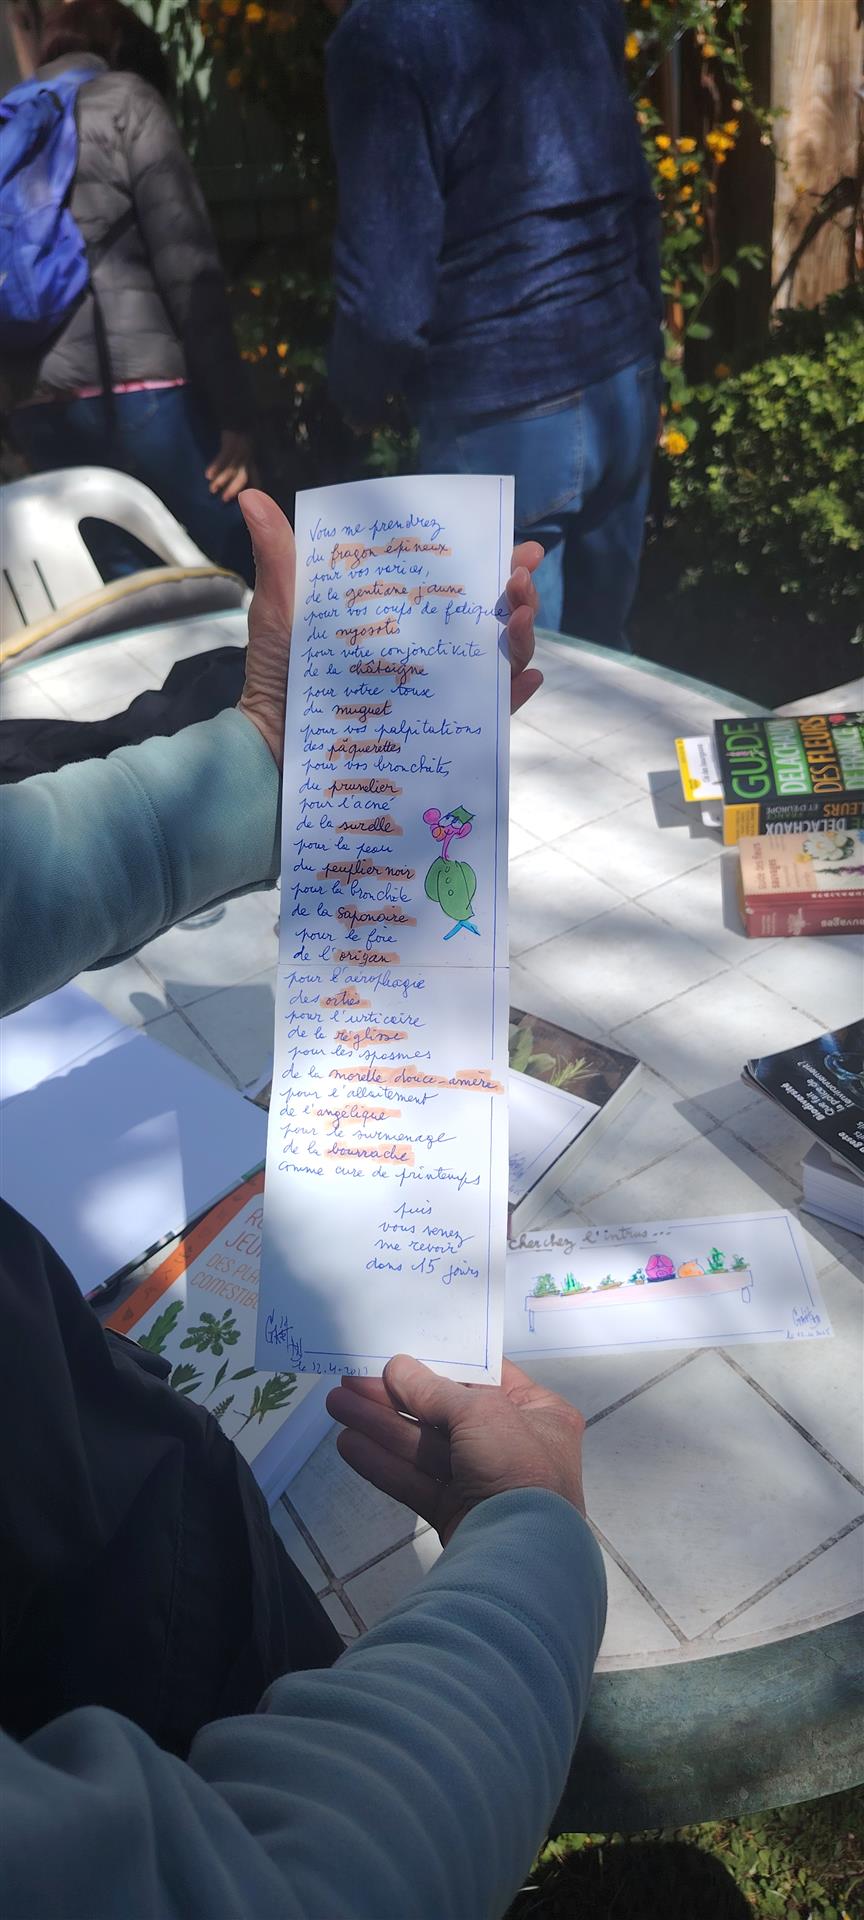 Vous me prendrez
du fragon épineux
pour vos varices,
de la gentiane jaune
pour vos coups de fatigue
du myosotis
pour votre conjonctivite
de la châtaigne
pour votre toux
du muguet
pour vos palpitations
des pâquerettes
pour vos bronchites
du prunelier
pour l'acné
de la surelle
pour la peau
du peuplier noir
pour la bronchite
de la saponaire
pour le foie
de l'origan
pour l'aérophagie
des orties
pour l'urticaire
de la réglisse
pour les spasmes
de la morelle douce-amère
pour l'allaitement
de l'angélique
pour le surmenage
de la bourrache
comme cure de printemps
puis
vous venez
me revoir
dans 15 jours
GUIDE
DELACHAUX
DES FLEURS
DE FRANCE
DELACHAUX
Biodiversité
Que fait
la police de
l'environnement?
cherchez l'intrus...
DES PLAN
COMESTIB